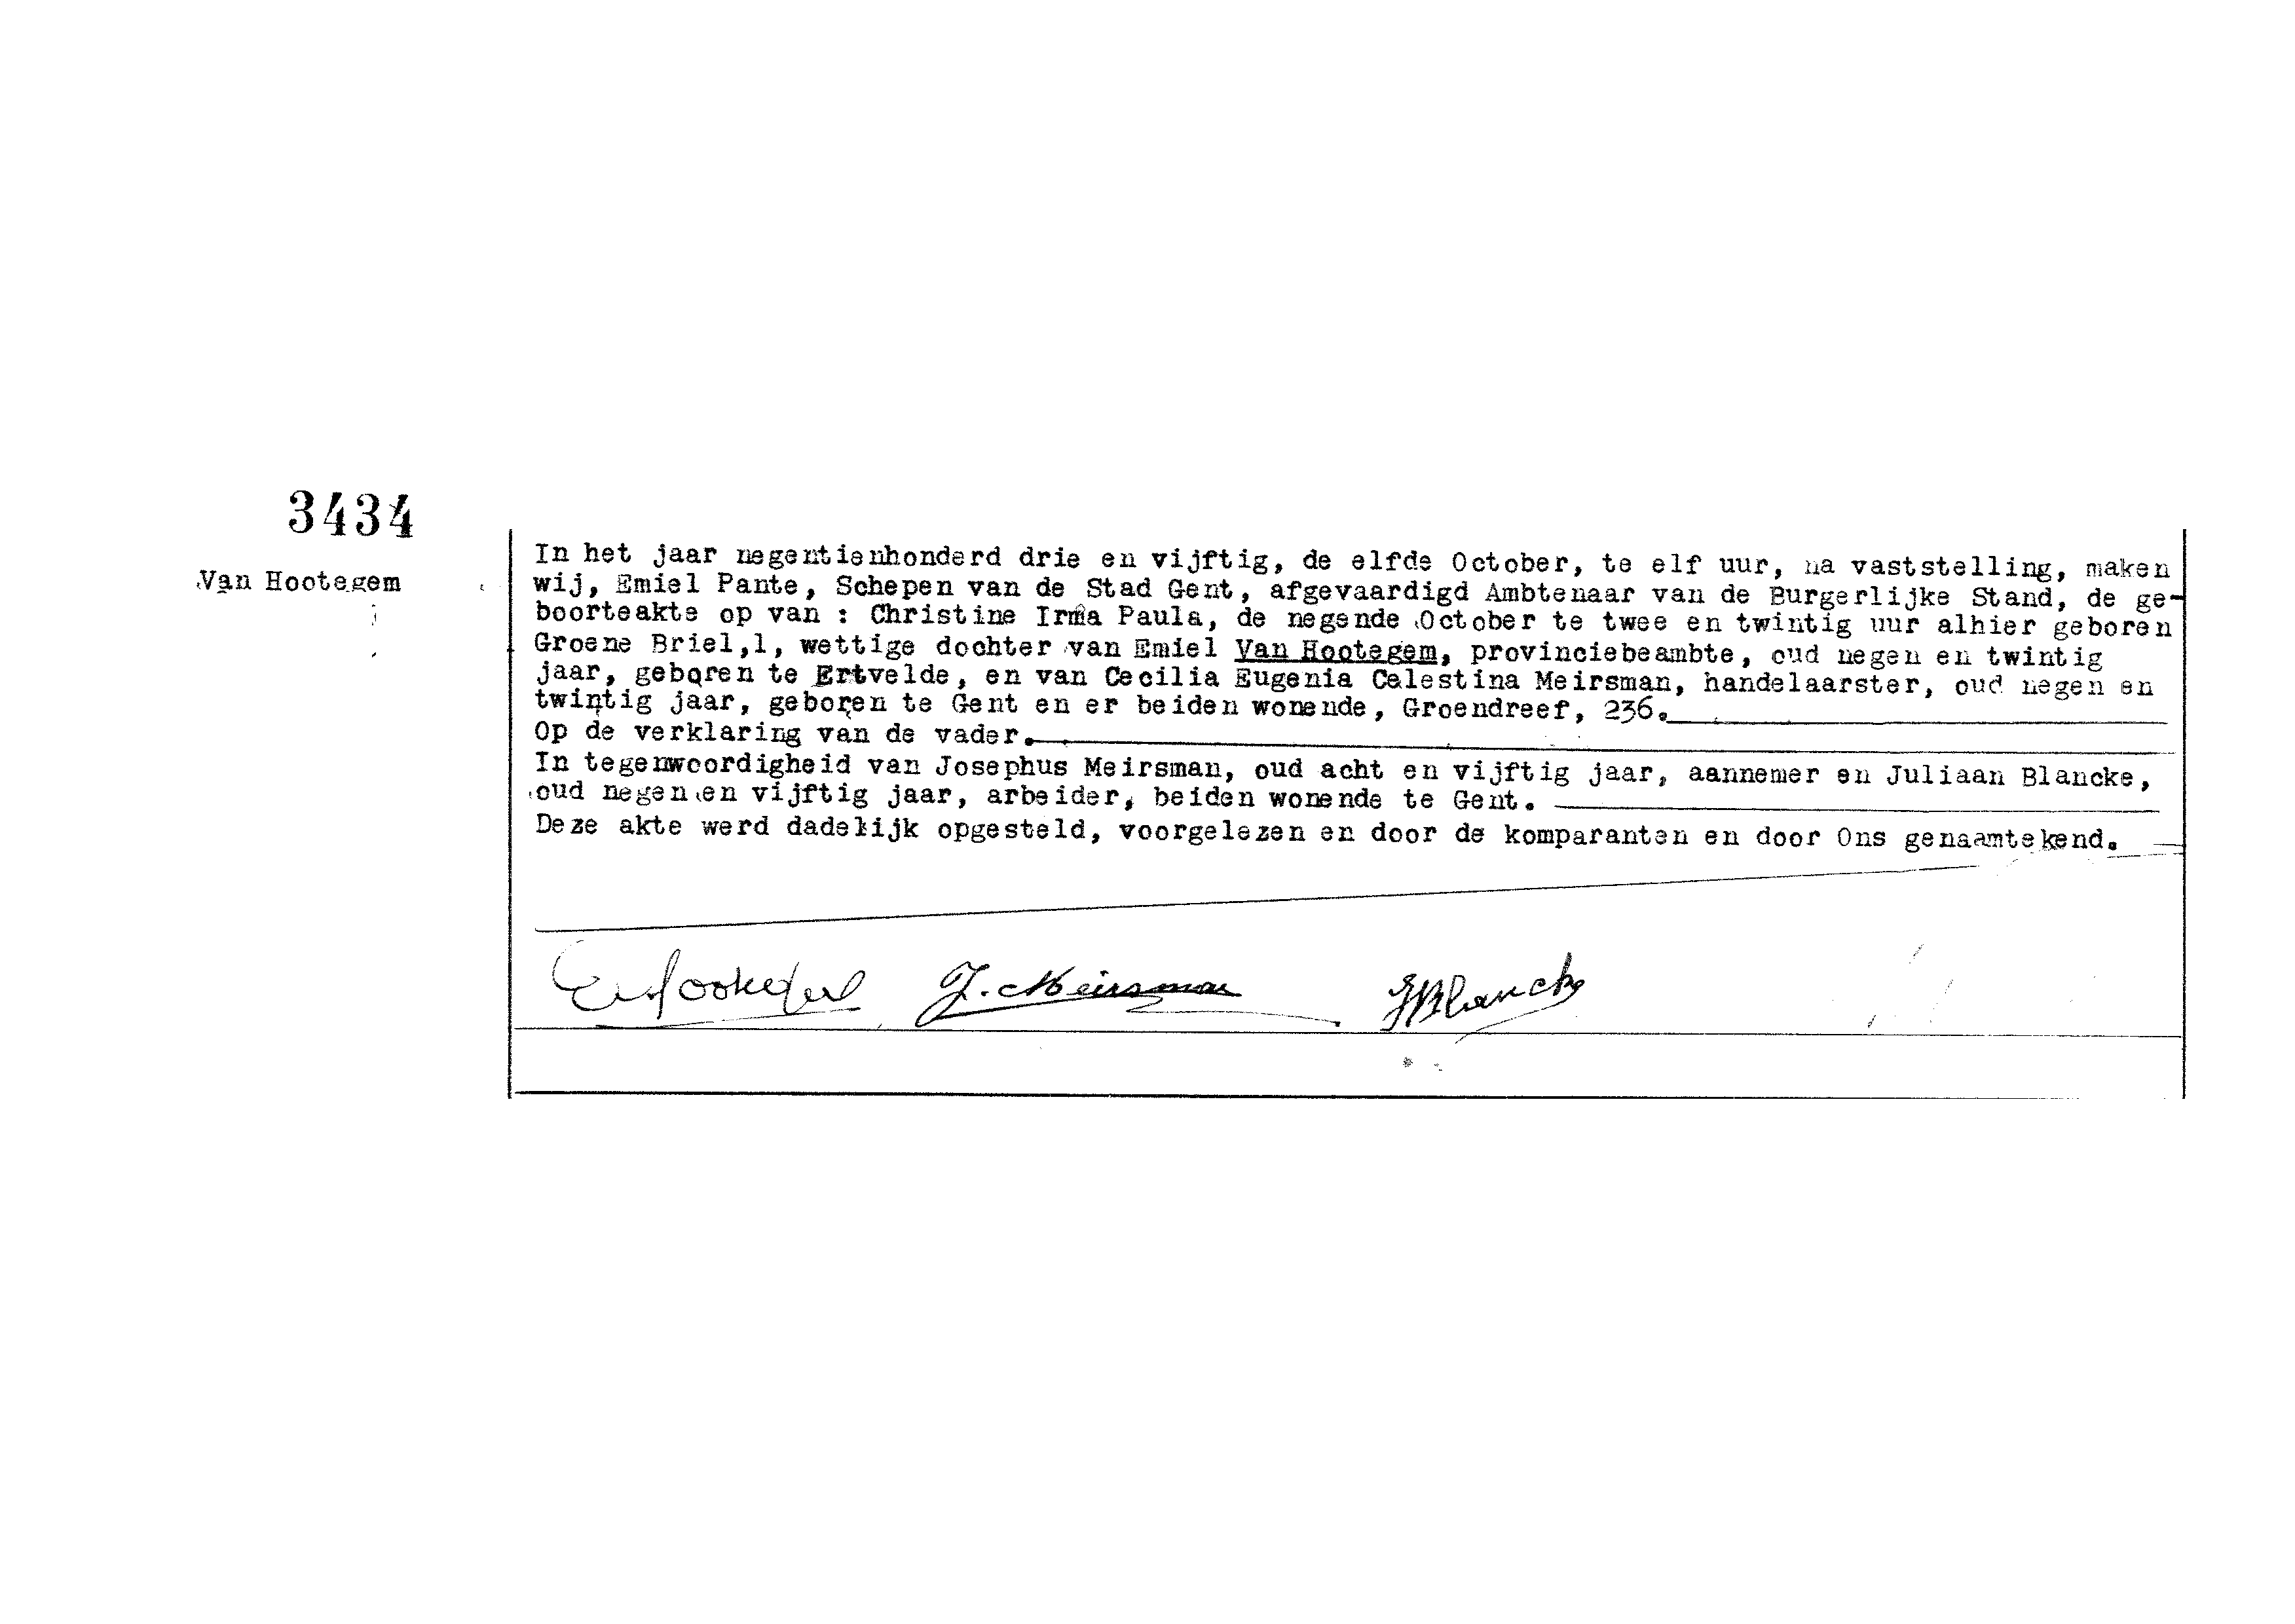 3434
Van Hootegem
In het jaar negentienhonderd drie en vijftig, de elfde October, te elf uur, na vaststelling, maken
wij, Emiel Pante, Schepen van de Stad Gent, afgevaardigd Ambtenaar van de Burgerlijke Stand, de ge-
boorteakte op van : Christine Irma Paula, de negende October te twee en twintig uur alhier geboren
Groene Briel,1, wettige dochter van Emiel Van Hootegem, provinciebeambte, oud negen en twintig
jaar, geboren te Ertvelde, en van Cecilia Eugenia Celestina Meirsman, handelaarster, oud negen en
twintig jaar, geboren te Gent en er beiden wonende, Groendreef, 236.
Op de verklaring van de vader.
In tegenwoordigheid van Josephus Meirsman, oud acht en vijftig jaar, aannemer en Juliaan Blancke,
oud negen en vijftig jaar, arbeider, beiden wonende te Gent.
Deze akte werd dadelijk opgesteld, voorgelezen en door de komparanten en door Ons genaamtekend.
J. Meirsman